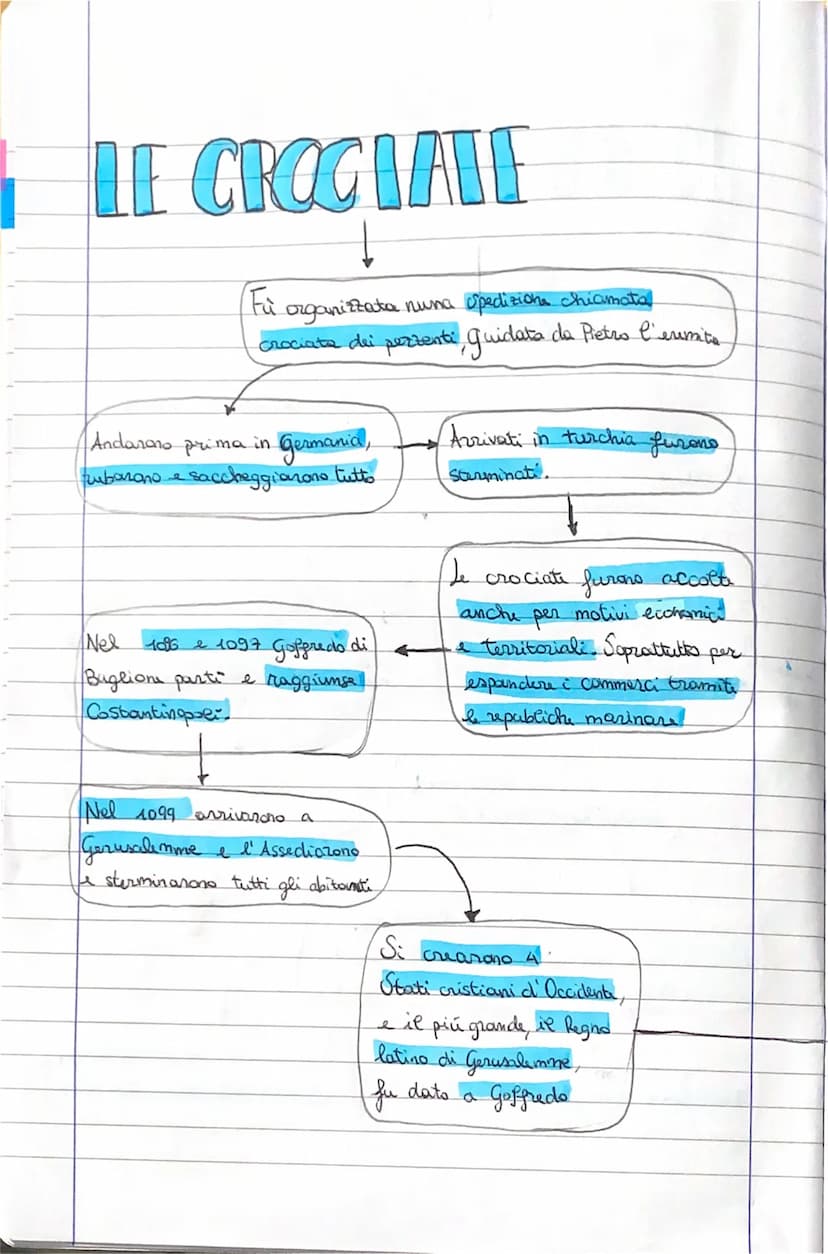 LE CROCIATE
Fù organizzata nuna spedizione chiamata
crociata dei pezzenti, guidata da Pietro l'erimita
Andarono prima in Germania,
rubarono e saccheggiarono tutto
Arrivati in turchia furono
sterminati.
Le crociate furono accolte
anche per motivi economici
e territoriali. Soprattutto per
espandere i commerci tramite
le republiche marinare
Nel 1096 e 1097 Goffredo di
Buglione partì e raggiunse
Nel 1099 arrivarono a
Gerusalemme e l'Assediarono
e sterminarono tutti gli abitanti
Si crearono 4
Stati cristiani d'Occidente,
e il più grande, il Regno
latino di Gerusalemme,
fu dato a Goffredo